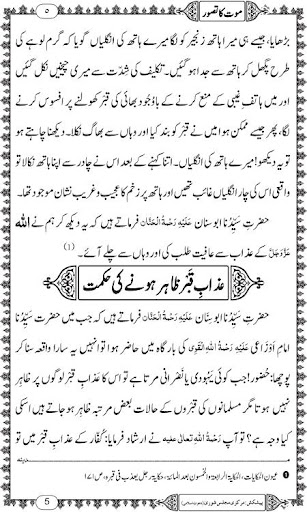 موت کا تصور
۵
بڑھایا، جیسے ہی میرا ہاتھ زنجیر کو لگا میرے ہاتھ کی انگلیاں گویا کہ گرم لوہے کی
طرح پگھل کر ہاتھ سے جدا ہو گئیں۔ تکلیف کی شدّت سے میری چیخیں نکل گئیں
اور میں ہاتف غیبی کے منع کرنے کے باوجود بھائی کی قبر کھولنے پر افسوس کرنے
لگا، پھر جیسے ممکن ہوا میں نے قبر کو بند کیا اور وہاں سے بھاگ نکلا۔ دیکھنا چاہتے ہو
تو یہ دیکھو! میرے ہاتھ کی انگلیاں۔ اتنا کہنے کے بعد اس نے چادر سے اپنا ہاتھ نکالا تو
واقعی اس کی چار انگلیاں غائب تھیں اور ہاتھ پر زخم کا عجیب و غریب نشان موجود تھا۔
حضرتِ سَیِّدُنا ابوسنان عَلَیْہِ رَحْمَۃُ الْحَنَّان فرماتے ہیں کہ یہ دیکھ کر ہم نے اللہ
عَزَّوَجَلَّ کے عذاب سے عافیت طلب کی اور وہاں سے چلے آئے۔ (۱)
عذابِ قَبْر ظاہر ہونے کی حکمت
حضرتِ سَیِّدُنا ابوسنان عَلَیْہِ رَحْمَۃُ الْحَنَّان فرماتے ہیں کہ جب میں حضرت سَیِّدُنا
امام اَوزاعی عَلَیْہِ رَحْمَۃُ اللہِ الْقَوِی کی بارگاہ میں حاضر ہوا تو انہیں یہ سارا واقعہ سنا کر
پوچھا: حضور! جب کوئی یہودی یا نصرانی مرتا ہے تو اس کا عذابِ قبر لوگوں پر ظاہر
نہیں ہوتا مگر مسلمانوں کی قبروں کے حالات بعض مرتبہ ظاہر ہو جاتے ہیں اسکی
کیا وجہ ہے؟ تو آپ رَحْمَۃُ اللہِ تعالٰی علیہ نے ارشاد فرمایا: کُفّار کے عذاب میں تو
1 عیون الحکایات، الحکایۃ الرابعۃ والخمسون بعد المائۃ، حکایۃ رجل یعذب فی قبرہ، ص ۱۷۱
5
پیشکش: مرکزی مجلس شوریٰ (دعوتِ اسلامی)